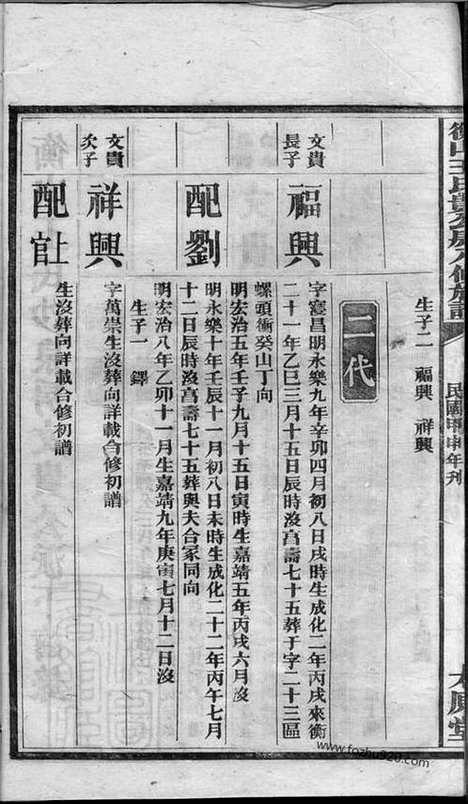 生子二　福興　祥興
民國甲申年刊
太原堂
二代
文貴
長子
福興
字寔昌明永樂九年辛卯四月初八日戌時生成化二年丙戌來衡
二十一年乙巳三月十五日辰時沒亯壽七十五葬于字二十三區
螺頭衝癸山丁向
明宏治五年壬子九月十五日寅時生嘉靖五年丙戌六月沒
配劉
明永樂十年壬辰十一月初八日未時生成化二十二年丙午七月
十二日辰時沒亯壽七十五葬與夫合冢同向
明宏治八年乙卯十一月生嘉靖九年庚寅七月十二日沒
生子一　鐸
文貴
次子
祥興
字萬崇生沒葬向詳載合修初譜
配官
生沒葬向詳載合修初譜
www.fozhu920.com